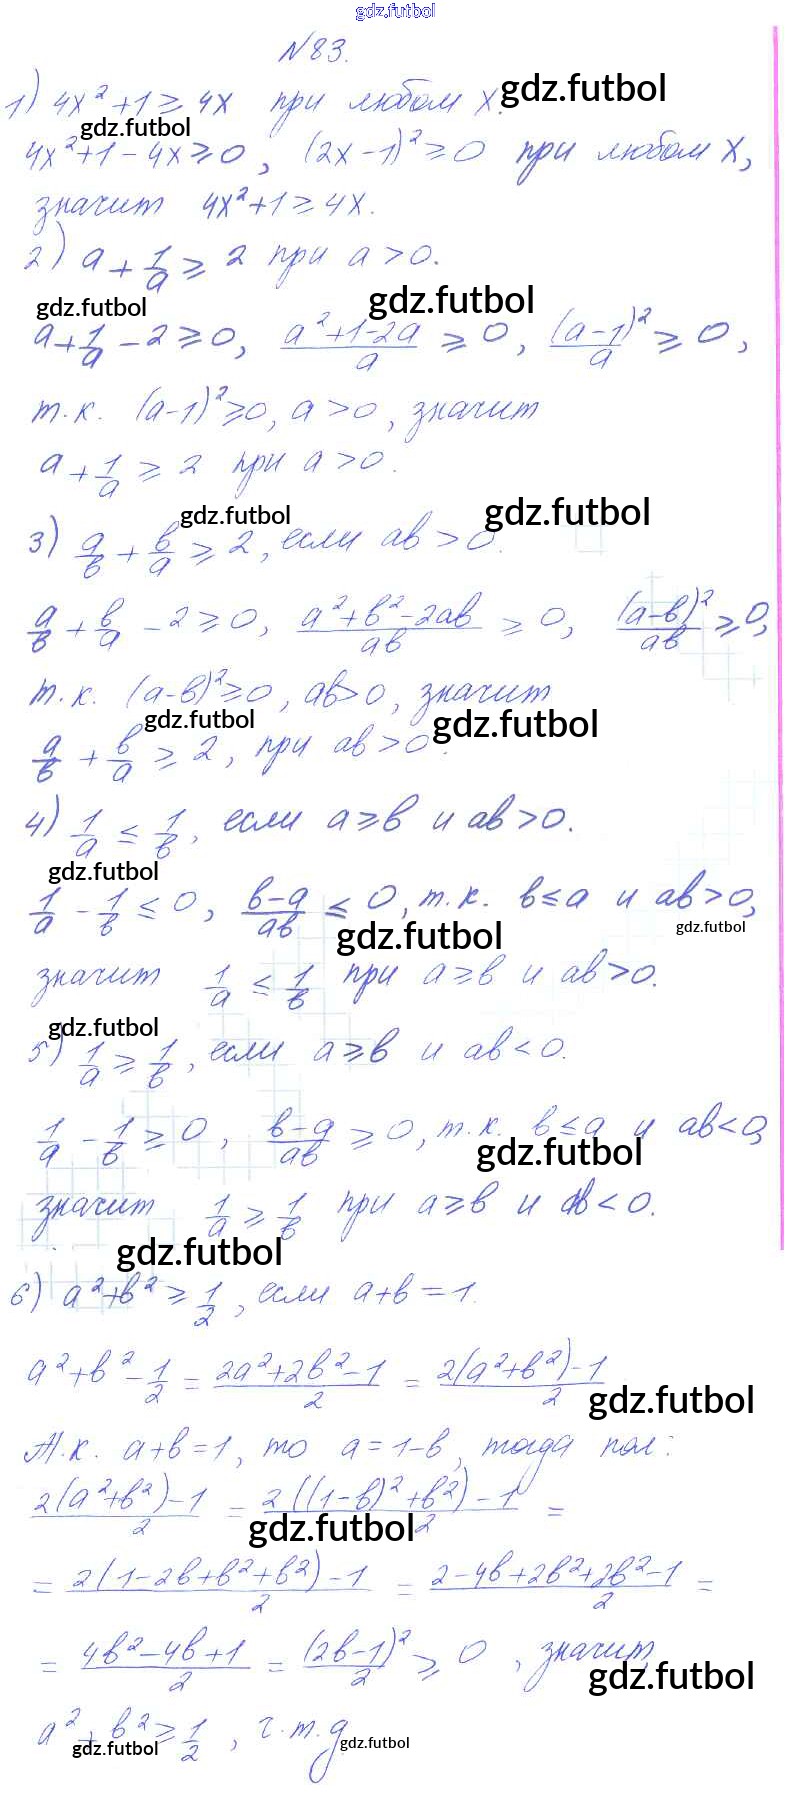 gdz.futbol
№83.
1) 4x² + 1 ≥ 4x при любом x. gdz.futbol
gdz.futbol
4x² + 1 - 4x ≥ 0, (2x - 1)² ≥ 0 при любом x,
значит 4x² + 1 ≥ 4x.
2) a + 1/a ≥ 2 при a > 0.
gdz.futbol gdz.futbol
a + 1/a - 2 ≥ 0, (a² + 1 - 2a)/a ≥ 0, (a - 1)²/a ≥ 0,
т.к. (a - 1)² ≥ 0, a > 0, значит
a + 1/a ≥ 2 при a > 0.
gdz.futbol gdz.futbol
3) a/b + b/a ≥ 2, если ab > 0.
a/b + b/a - 2 ≥ 0, (a² + b² - 2ab)/ab ≥ 0, (a - b)²/ab ≥ 0,
т.к. (a - b)² ≥ 0, ab > 0, значит
gdz.futbol gdz.futbol
a/b + b/a ≥ 2, при ab > 0.
4) 1/a ≤ 1/b, если a ≥ b и ab > 0.
gdz.futbol
1/a - 1/b ≤ 0, (b - a)/ab ≤ 0, т.к. b ≤ a и ab > 0,
gdz.futbol gdz.futbol
значит 1/a ≤ 1/b при a ≥ b и ab > 0.
gdz.futbol
5) 1/a ≥ 1/b, если a ≥ b и ab < 0.
1/a - 1/b ≥ 0, (b - a)/ab ≥ 0, т.к. b ≤ a и ab < 0,
gdz.futbol
значит 1/a ≥ 1/b при a ≥ b и ab < 0.
gdz.futbol
6) a² + b² ≥ 1/2, если a + b = 1.
a² + b² - 1/2 = (2a² + 2b² - 1)/2 = (2(a² + b²) - 1)/2
gdz.futbol
Т.к. a + b = 1, то a = 1 - b, тогда пол:
(2(a² + b²) - 1)/2 = (2((1 - b)² + b²) - 1)/2 =
gdz.futbol
= (2(1 - 2b + b² + b²) - 1)/2 = (2 - 4b + 2b² + 2b² - 1)/2 =
= (4b² - 4b + 1)/2 = (2b - 1)²/2 ≥ 0, значит
gdz.futbol
a² + b² ≥ 1/2, ч.т.д.
gdz.futbol gdz.futbol